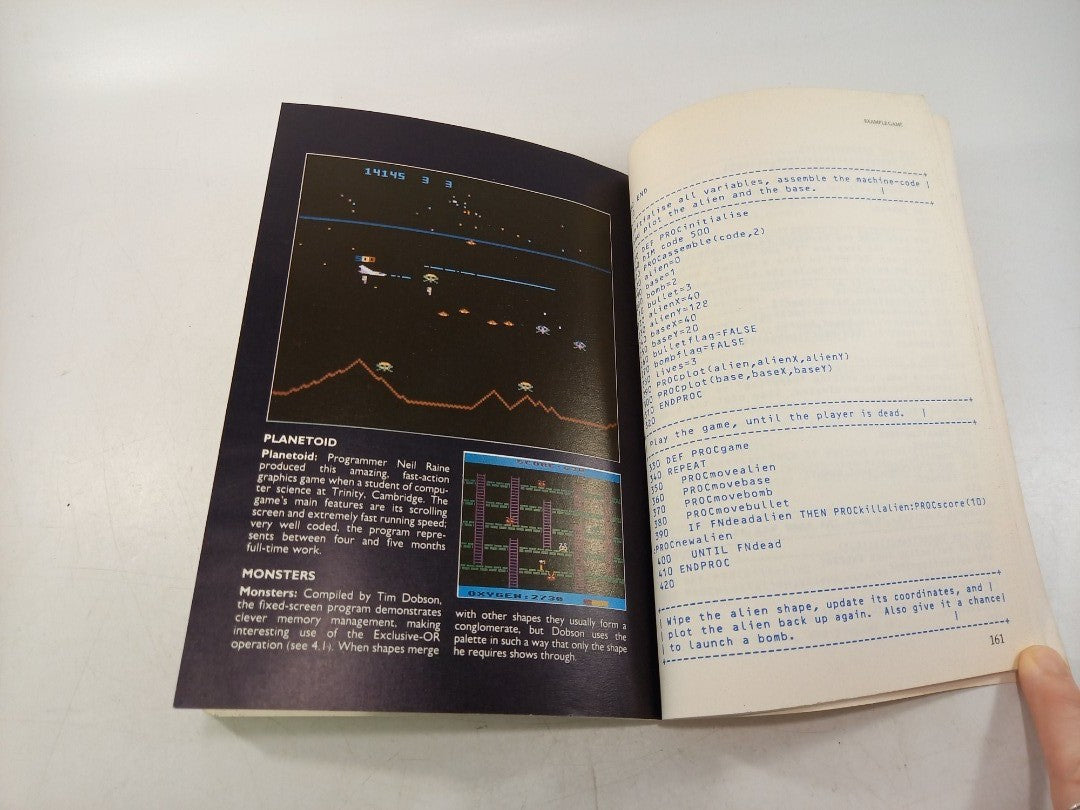 14145 3 3
500
PLANETOID
Planetoid: Programmer Neil Raine
produced this amazing, fast-action
graphics game when a student of compu-
ter science at Trinity, Cambridge. The
game's main features are its scrolling
screen and extremely fast running speed;
very well coded, the program repre-
sents between four and five months
full-time work.
MONSTERS
Monsters: Compiled by Tim Dobson,
the fixed-screen program demonstrates
clever memory management, making
interesting use of the Exclusive-OR
operation (see 4.1). When shapes merge
OXYGEN:2730
with other shapes they usually form a
conglomerate, but Dobson uses the
palette in such a way that only the shape
he requires shows through.
EXAMPLE GAME
END
all variables, assemble the machine-code |
plot the alien and the base. |
DEF PROCinitialise
DIM code 500
PROCassemble(code,2)
alien=0
base=1
bomb=2
bullet=3
alienX=40
alienY=128
baseX=40
baseY=20
bulletflag=FALSE
bombflag=FALSE
lives=3
PROCplot(alien,alienX,alienY)
PROCplot(base,baseX,baseY)
ENDPROC
Play the game, until the player is dead. |
330 DEF PROCgame
340 REPEAT
350 PROCmovealien
360 PROCmovebase
370 PROCmovebomb
380 PROCmovebullet
390 IF FNdeadalien THEN PROCkillalien:PROCscore(10)
:PROCnewalien
400 UNTIL FNdead
410 ENDPROC
420
| Wipe the alien shape, update its coordinates, and |
| plot the alien back up again. Also give it a chance|
| to launch a bomb. |
161